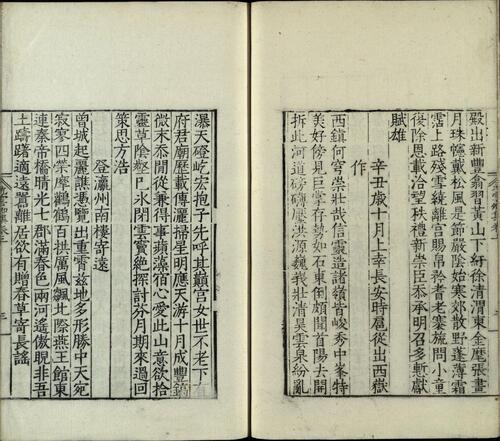 殿出新豐翁習黃山下紆徐清渭東金麾張畫
月珠幰戴松風是節嚴陰始寒郊散野蓬薄霜
霑上路殘雪繞離宮賜帛矜耆老褰旒問小童
復除恩載洽望秩禮新崇臣忝承明召多慙獻
賦雄
辛丑歲十月上幸長安時扈從出西嶽
作
西鎮何穹崇壯哉信靈造諸嶺皆峻秀中峯特
美好傍見巨掌存勢如石東倒頗聞首陽去開
拆此河道磅礴壓洪源巍我壯清昊雲泉紛亂
瀑天磴屹宏抱子先呼其巔宮女世不老下有
府君廟歷載傳灑掃星明應天游十月成豐鎬
微末忝閒從兼得事蘋藻宿心愛此山意欲拾
靈草陰壑已永閉雲竇絕探討芬月期來過回
策思方浩
登瀛州南樓寄遠
曾城起麗譙憑覽出重霄茲地多形勝中天宛
寂寥四榮摩鸛鶴百拱厲風飆北際燕王館東
連秦帝橋晴光七郡滿春色兩河遙傲睨非吾
土躊躇適遠囂離居欲有贈春草寄長謠